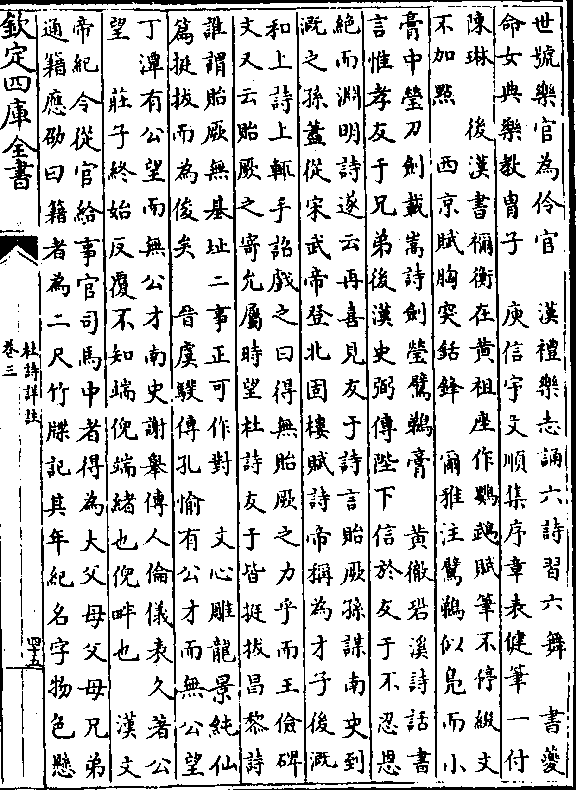 世號樂官為伶官　漢禮樂志誦六詩習六舞　書夔
命女典樂教胄子　庾信宇文順集序章表健筆一付
陳琳　後漢書禰衡在黃祖座作鸚鵡賦筆不停綴文
不加點　西京賦胸突銛鋒　爾雅注鷿鵜似鳬而小
膏中瑩刀劍戴嵩詩劍瑩鷿鵜膏　黃徹䂬溪詩話書
言惟孝友于兄弟後漢史弼傳陛下信於友于不忍恩
絕而淵明詩遂云再喜見友于詩言貽厥孫謀南史到
溉之孫蓋從宋武帝登北固樓賦詩帝稱為才子後溉
和上詩上輒手詔戲之曰得無貽厥之力乎而王儉碑
文又云貽厥之寄允屬時望杜詩友于皆挺拔昌黎詩
誰謂貽厥無基址二事正可作對　文心雕龍景純仙
篇挺拔而為俊矣　晉虞駿傳孔愉有公才而無公望
丁潭有公望而無公才南史謝舉傳人倫儀表久著公
望　莊子終始反覆不知端倪端緒也倪畔也　漢文
帝紀令從官給事官司馬中者得為大父母父母兄弟
通籍應劭曰籍者為二尺竹牒記其年紀名字物色懸
欽定四庫全書
杜詩詳註
卷三
四十五